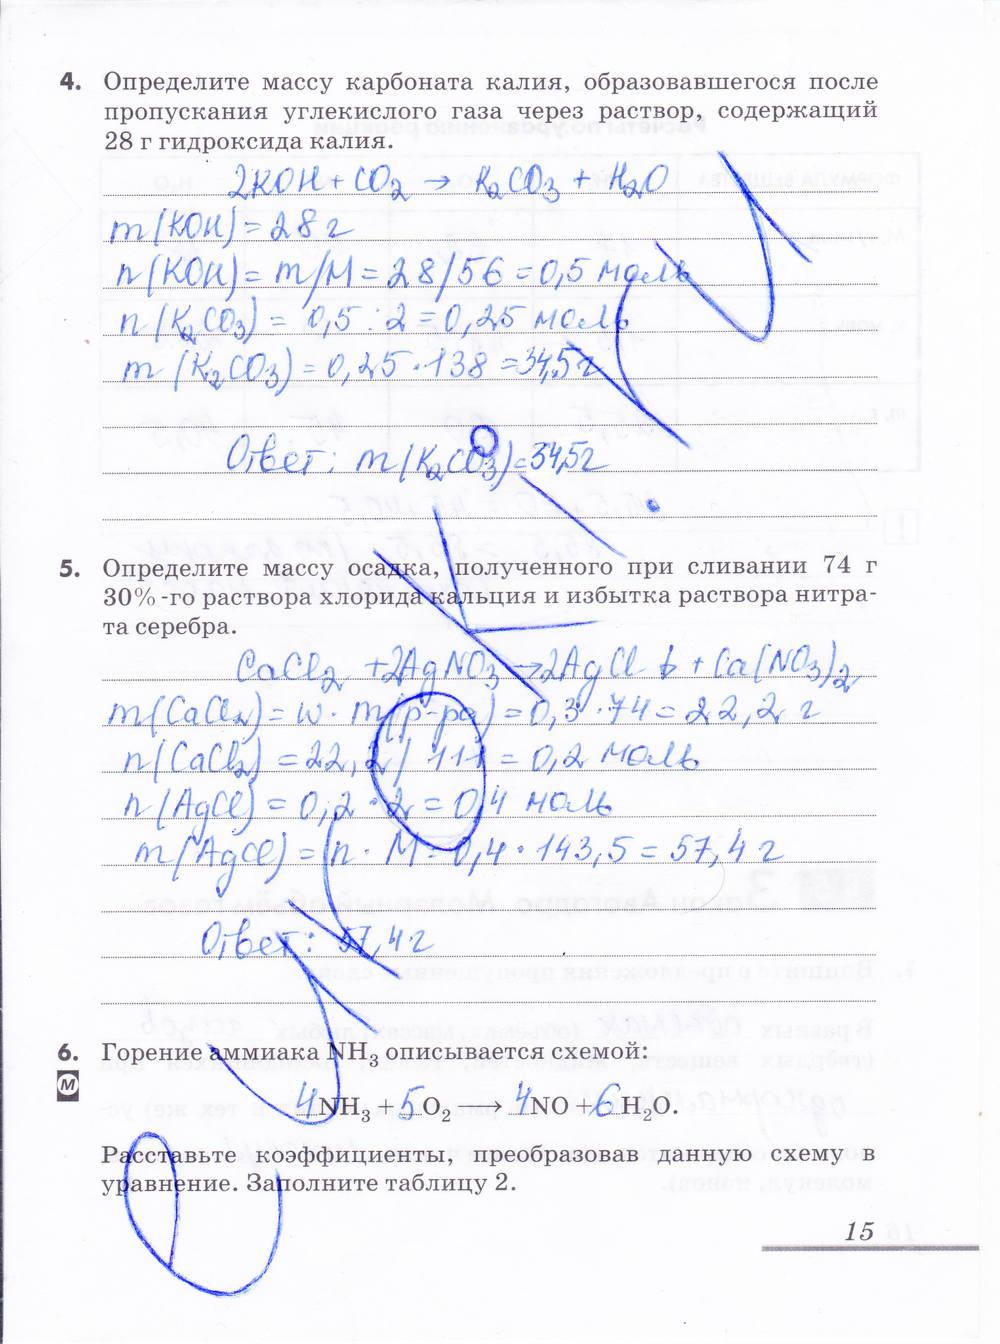 4. Определите массу карбоната калия, образовавшегося после
пропускания углекислого газа через раствор, содержащий
28 г гидроксида калия.
2KOH + CO2 → K2CO3 + H2O
m(KOH) = 28 г
n(KOH) = m/M = 28/56 = 0,5 моль
n(K2CO3) = 0,5 : 2 = 0,25 моль
m(K2CO3) = 0,25 · 138 = 34,5г
Ответ: m(K2CO3) = 34,5г
5. Определите массу осадка, полученного при сливании 74 г
30%-го раствора хлорида кальция и избытка раствора нитра-
та серебра.
CaCl2 + 2AgNO3 → 2AgCl ↓ + Ca(NO3)2
m(CaCl2) = w · m(р-ра) = 0,3 · 74 = 22,2 г
n(CaCl2) = 22,2 / 111 = 0,2 моль
n(AgCl) = 0,2 · 2 = 0,4 моль
m(AgCl) = n · M = 0,4 · 143,5 = 57,4 г
Ответ: 57,4 г
6. Горение аммиака NH3 описывается схемой:
М
4 NH3 + 5 O2 → 4 NO + 6 H2O.
Расставьте коэффициенты, преобразовав данную схему в
уравнение. Заполните таблицу 2.
15